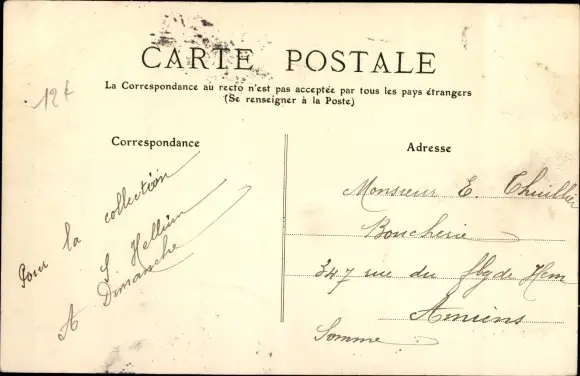 CARTE POSTALE
La Correspondance au recto n'est pas acceptée par tous les pays étrangers
(Se renseigner à la Poste)
12f
Correspondance
Pour la collection
A Dimanche
Adresse
Monsieur E. Thuillier
Boucherie
347 rue du fbg de Hem
Amiens
Somme